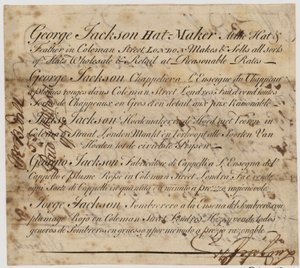 George Jackson Hat-Maker at the Hat &
Feather in Coleman Street, LONDON Makes & Sells all Sorts
of Hatts Wholesale & Retail at Reasonable Rates
George Jackson Chappelier a L'Enseigne du Chappeau
Plumes rouges dans Coleman Street Londres Fait & vend toutes
Sortes de Chappeaux en Gros et en detail aux prix Raisonable
Jackson Hoedemaker in de Hoed met Veeren in
Coleman Straat London Maakt en Verkoopt alle Soorten Van
Hoeden tot de civielste Prysen
Giorgio Jackson Fabricatore di Cappelli a L'Ensegna del
Cappello e piume Rosse in Coleman Street Londra Fa e vende
ogni Sorte di Cappelli in quantita e in minuto a prezzo ragionevole
Jorge Jackson Sombrerero a la Ensena del Sombrero con
plumage Rojo en Coleman Street Londres Haze y vende todos
generos de Sombreros en gruesso y por menudo a precio razonable